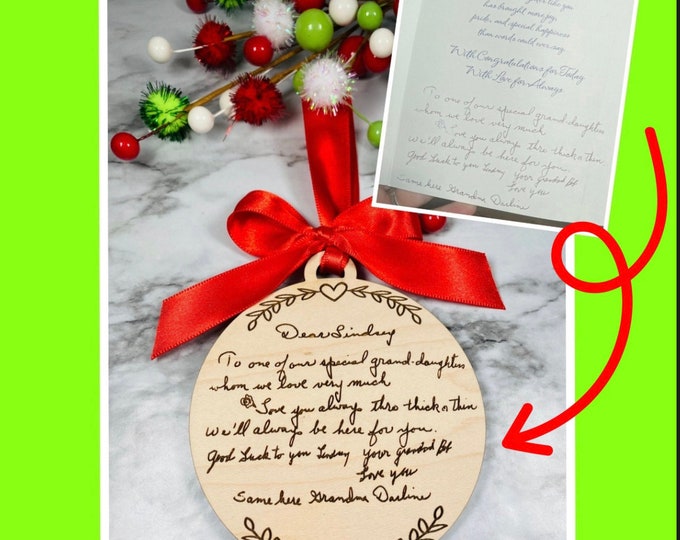 has brought more joy,
pride, and special happiness
than words could ever say.
With Congratulations for Today
With Love for Always
To one of our special grand-daughters
whom we love very much
Love you always thro thick n thin
We'll always be here for you.
Good Luck to you Lindsay your grandad
Love you
Same here Grandma Darline
Dear Lindsay
To one of our special grand-daughters
whom we love very much
Love you always thro thick n thin
We'll always be here for you.
Good Luck to you Lindsay your grandad
Love you
Same here Grandma Darline